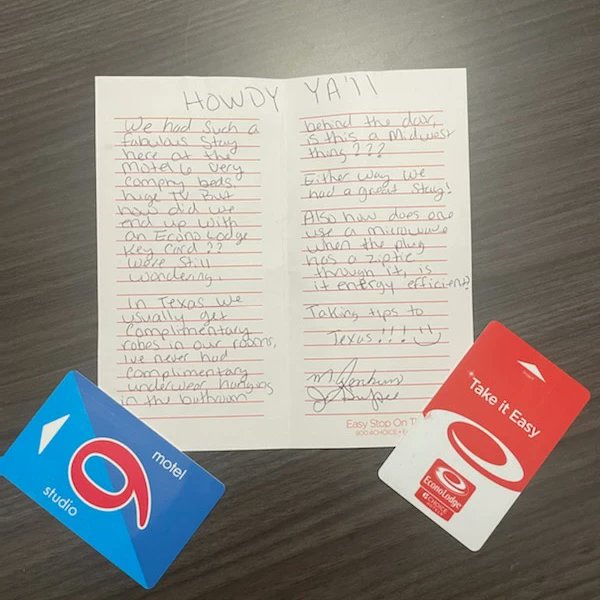 HOWDY YA'll
We had such a
fabulous stay
here at the
motel 6 very
comphy beds.
huge TV. But
how did we
end up with
an Econo Lodge
Key card??
We're still
wondering.
In Texas we
usually get
complimentary
robes in our rooms,
Ive never had
complimentary
underwear hanging
in the bathroom
behind the door,
is this a Midwest
thing???
Either way we
had a great stay!
Also how does one
use a microwave
when the plug
has a ziptie
through it, is
it energy efficient?
Taking tips to
Texas!!!
Easy Stop On T
800.4CHOICE
motel
6
studio
Take it Easy
EconoLodge
CHOICE
HOTELS